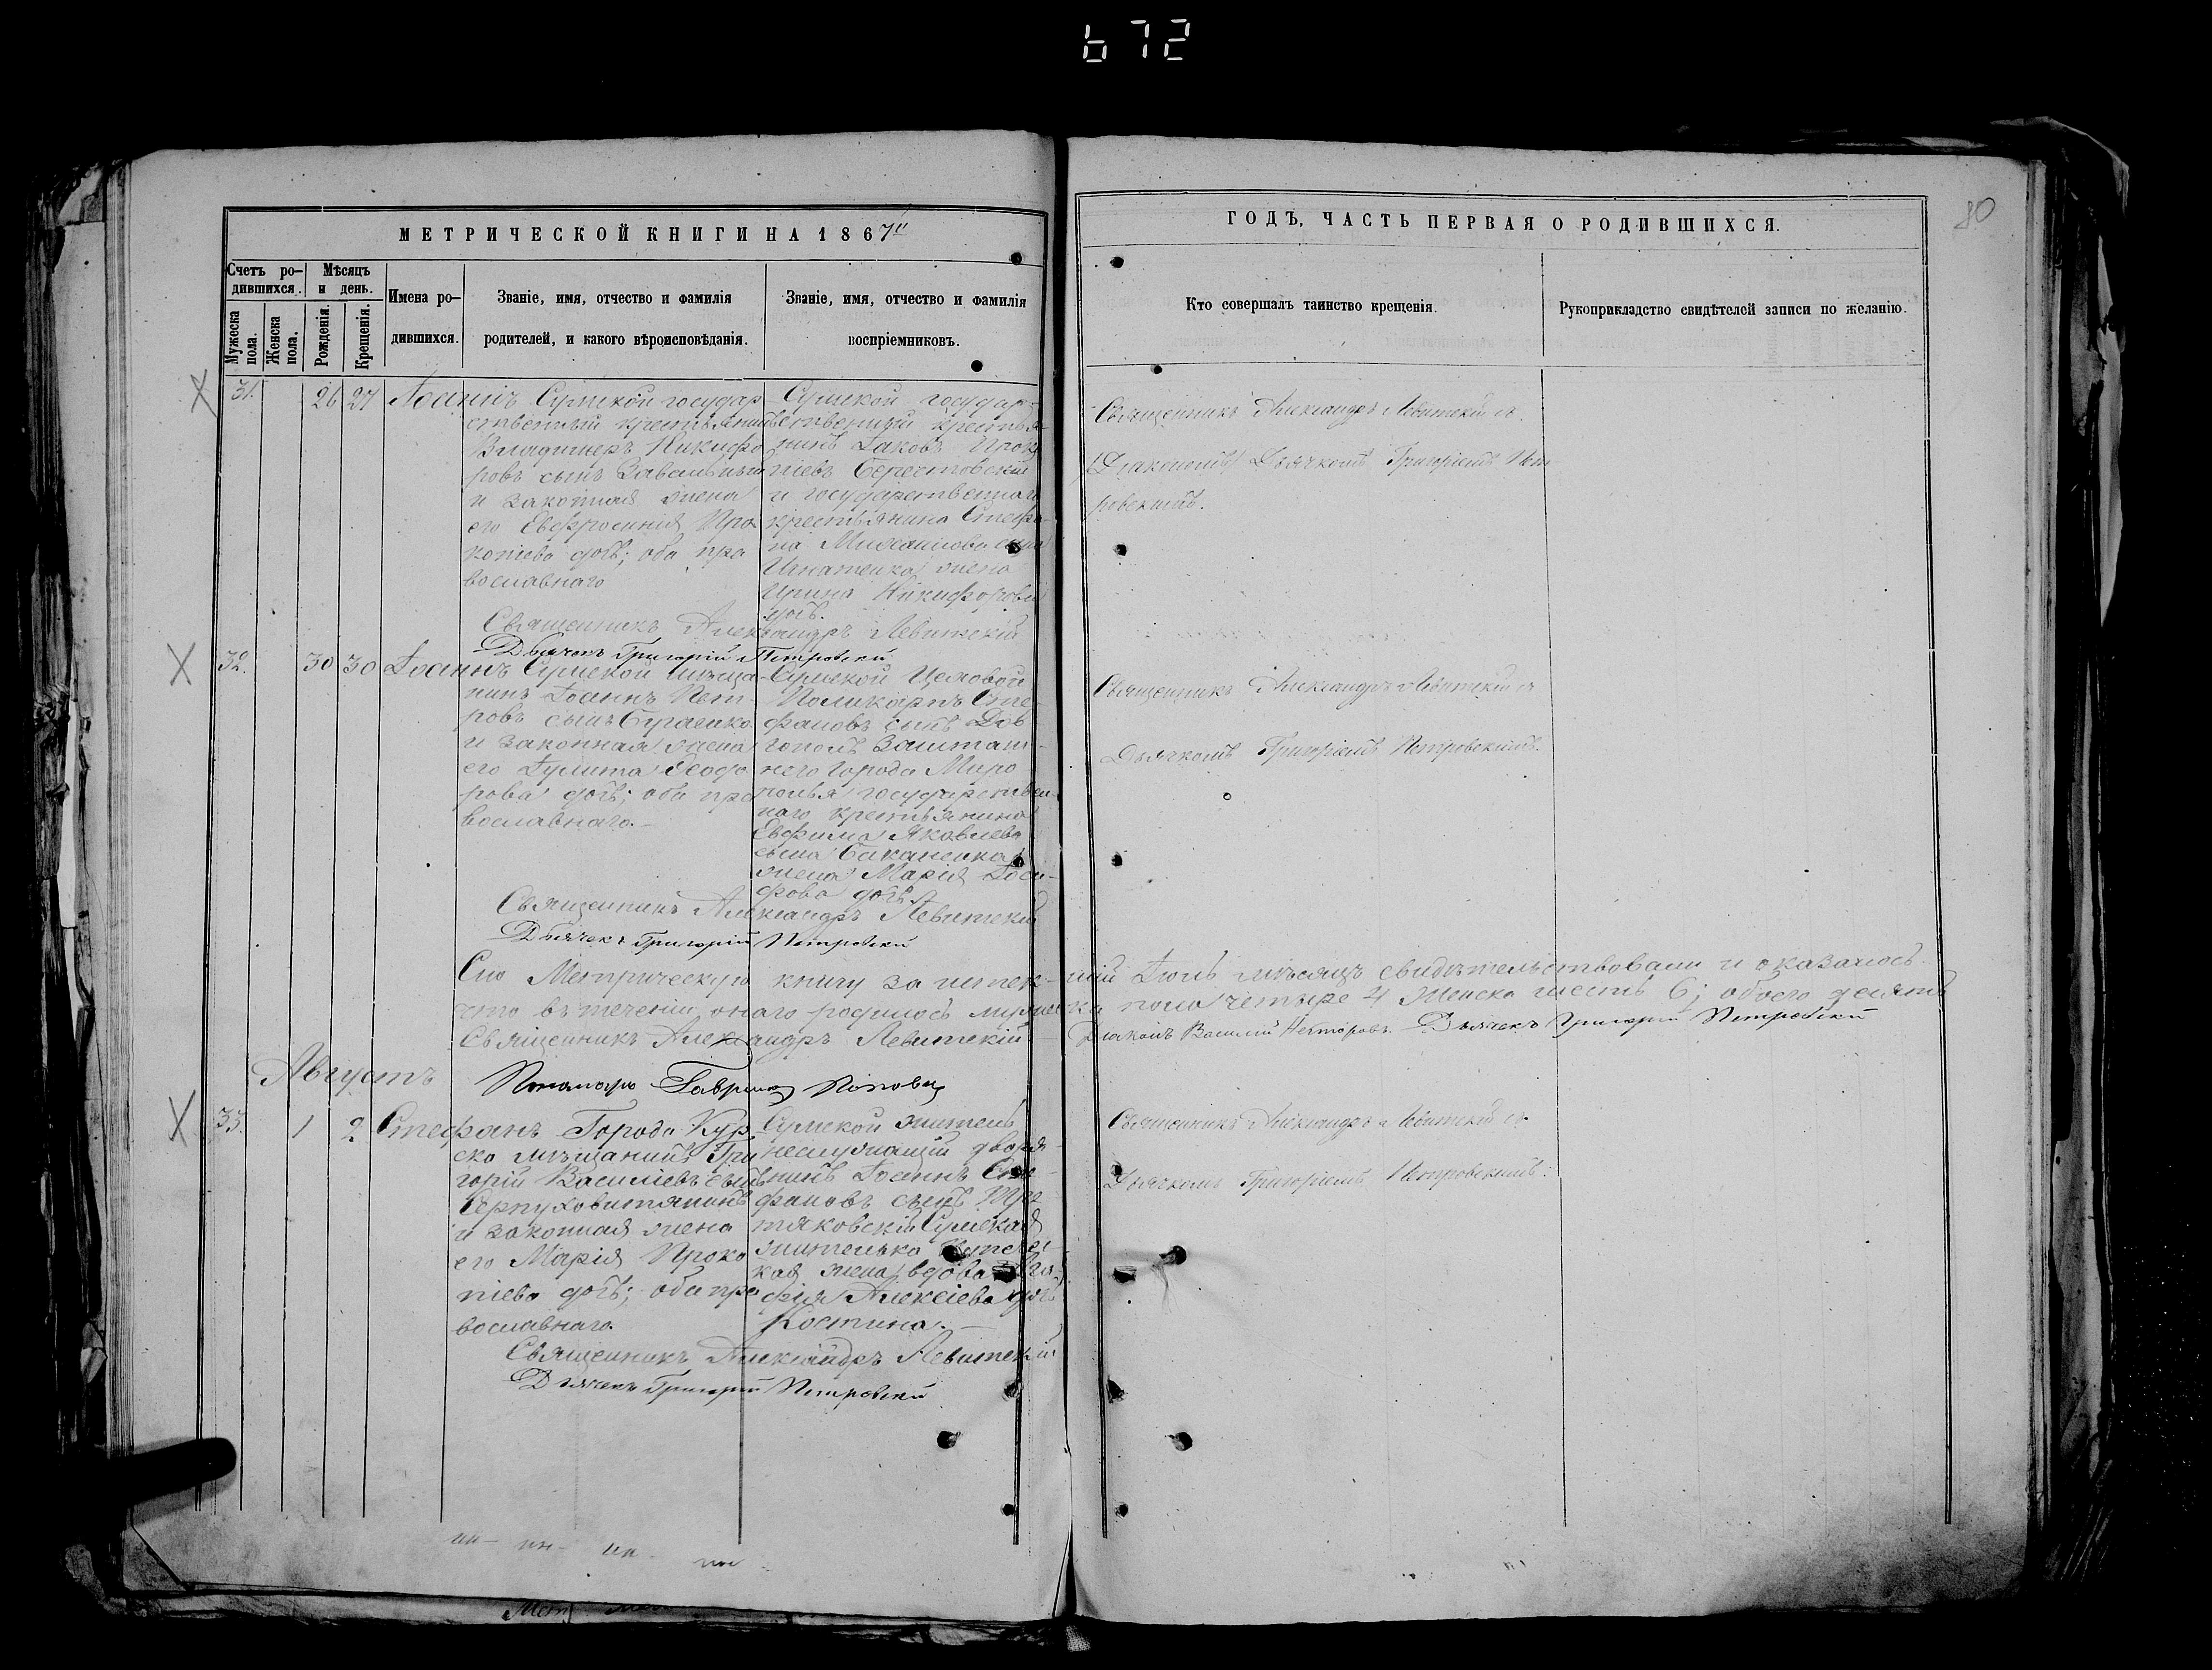 672
80
МЕТРИЧЕСКОЙ КНИГИ НА 1867й
ГОДЪ, ЧАСТЬ ПЕРВАЯ О РОДИВШИХСЯ.
Счетъ ро-
дившихся.
Мѣсяцъ
и день.
Мужеска
пола.
Женска
пола.
Рожденія.
Крещенія.
Имена ро-
дившихся.
Званіе, имя, отчество и фамилія
родителей, и какого вѣроисповѣданія.
Званіе, имя, отчество и фамилія
воспріемниковъ.
Кто совершалъ таинство крещенія.
Рукоприкладство свидѣтелей записи по желанію.
31.
26
27
Іоаннъ
Сумской государ
ственный крестьянинъ
Владимиръ Никифо
ровъ сынъ
и законная жена
его Евфросинія Про
копіева дочь; оба пра
вославнаго
Сумской государ-
ственный крестья-
нинъ Іаковъ Проко
піевъ Берестовскій
и государственнаго
крестьянина Стефа-
на Михаилова сына
Игнатенка жена
Ирина Никифорова
дочь.
Священникъ Александръ Левитскій
Дьячекъ Григорій Петровскій
Священникъ Александръ Левитскій съ
(Діакономъ) Дьячкомъ Григоріемъ Пет
ровскимъ.
32.
30
30
Іоаннъ
Сумской мѣща-
нинъ Іоаннъ Пет-
ровъ сынъ Бугаенко
и законная жена
его Іулита Ѳеодо
рова дочь; оба пра
вославнаго.
Сумской Цеховой
Поликарпъ Сте-
фановъ сынъ Дов
гополъ Заштат-
наго города Миро
полья государствен-
наго крестьянина
Евфима Яковлева
сына Баканенка
жена Марія Іоси-
фова дочь.
Священникъ Александръ Левитскій
Дьячекъ Григорій Петровскій
Священникъ Александръ Левитскій съ
Дьячкомъ Григоріемъ Петровскимъ.
Сію Метрическую книгу за истек-шій Іюль мѣсяцъ свидѣтельствовали и оказалось
что въ теченіи онаго родилось мужеска пола четыре 4 Женска шесть 6; обоего десять
Священникъ Александръ Левитскій Діаконъ Василій Дьячекъ Григорій Петровскій
Августъ
Пономарь Гавріилъ Поповъ
33.
1
2
Стефанъ
Города Кур
ска мѣщанинъ Гри
горій Василіевъ сынъ
Серпуховитянинъ
и законная жена
его Марія Проко
піева дочь; оба пра
вославнаго.
Сумской житель
неслужащій дворя
нинъ Іоаннъ Сте
фановъ сынъ Тре
тяковскій Сумская
жителька Купечес
кая жена вдова
Алексіева дочь
Костина.
Священникъ Александръ Левитскій
Дьячекъ Григорій Петровскій
Священникъ Александръ Левитскій съ
Дьячкомъ Григоріемъ Петровскимъ.